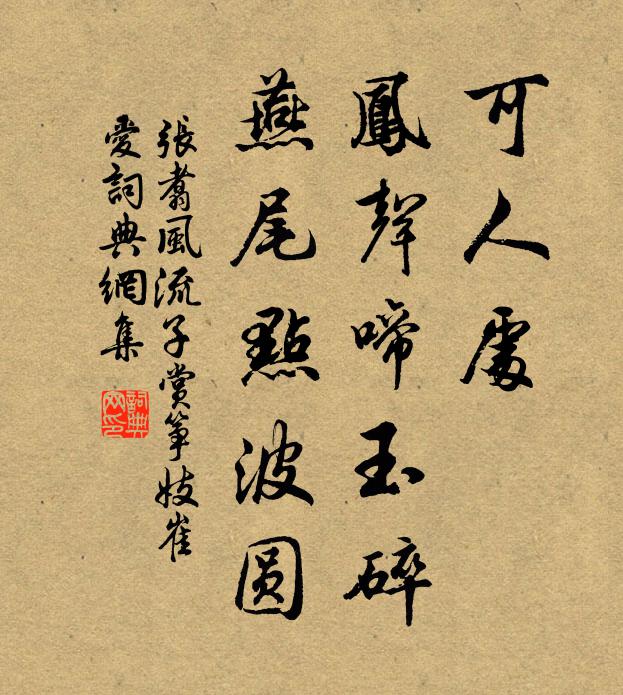 可人處
鳳聲啼玉碎
燕尾點波圓
張翥風流子賞筝妓崔
愛詞典網集
詞典
网印